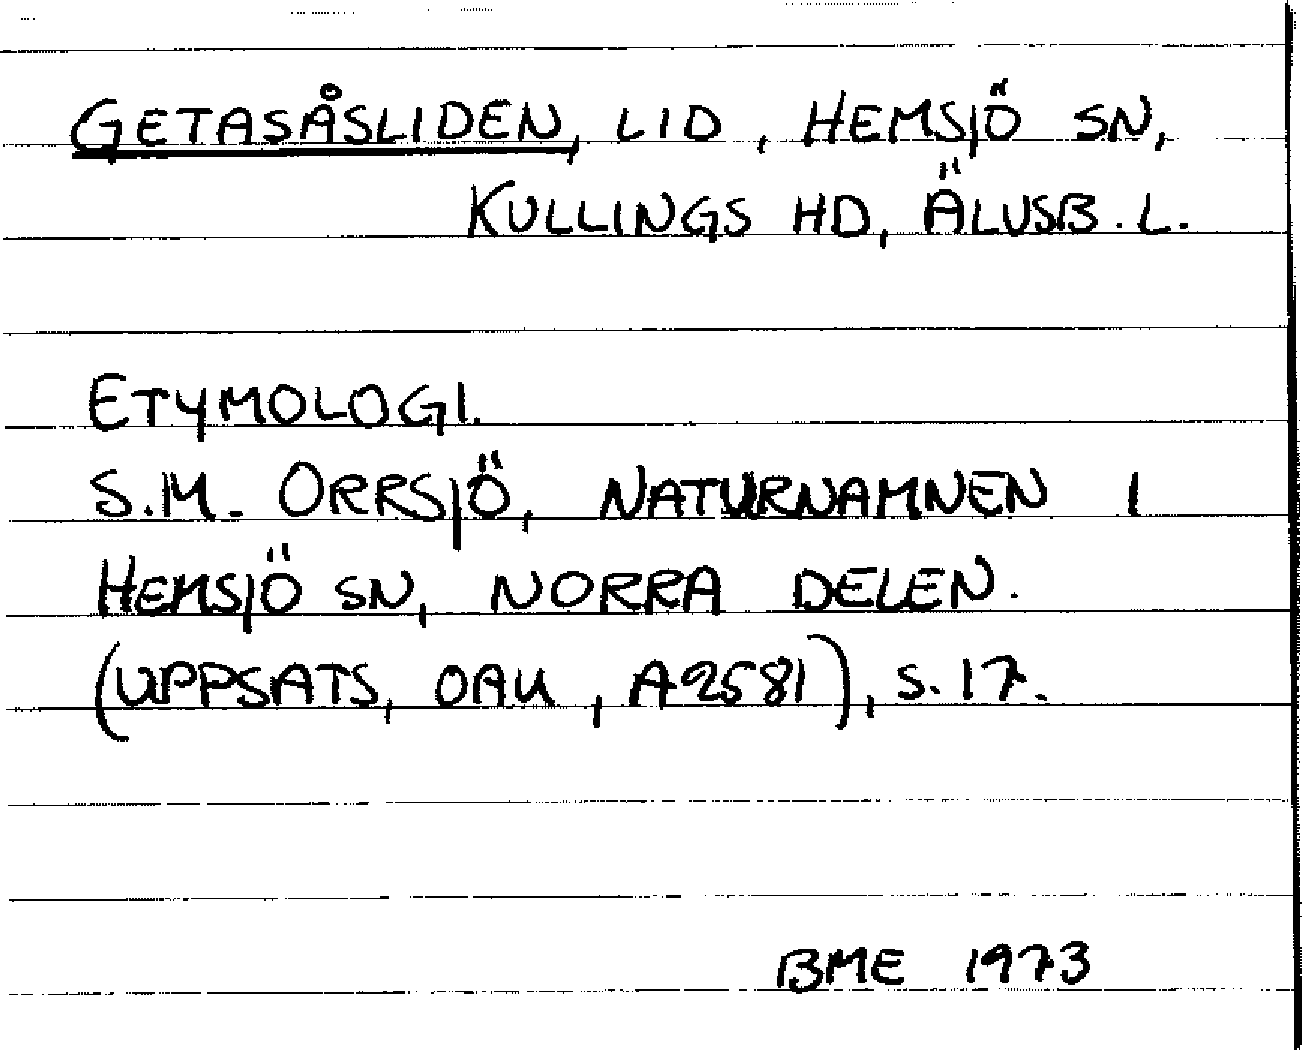 GETASÅSLIDEN, LID, HEMSJÖ SN,
KULLINGS HD, ÄLVSB. L.
ETYMOLOGI.
S.M. ORRSJÖ, NATURNAMNEN I
HEMSJÖ SN, NORRA DELEN.
(UPPSATS, OAU, A2581), S. 17.
BME 1973